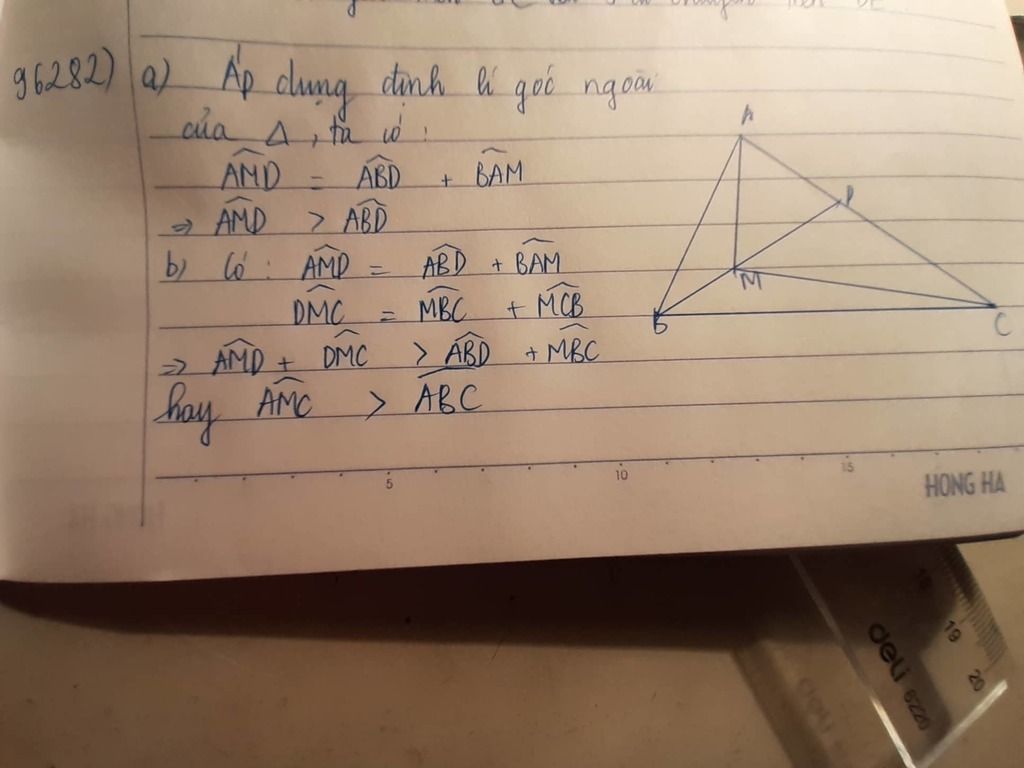 96282) a) Áp dụng định lí góc ngoài
của Δ, ta có:
$\widehat{AMD}$ = $\widehat{ABD}$ + $\widehat{BAM}$
⇒ $\widehat{AMD}$ > $\widehat{ABD}$
b) Có: $\widehat{AMD}$ = $\widehat{ABD}$ + $\widehat{BAM}$
$\widehat{DMC}$ = $\widehat{MBC}$ + $\widehat{MCB}$
⇒ $\widehat{AMD}$ + $\widehat{DMC}$ > $\widehat{ABD}$ + $\widehat{MBC}$
hay $\widehat{AMC}$ > $\widehat{ABC}$
A
D
M
B
C
5 10 15
HONG HA
18 19 20
deli 6220